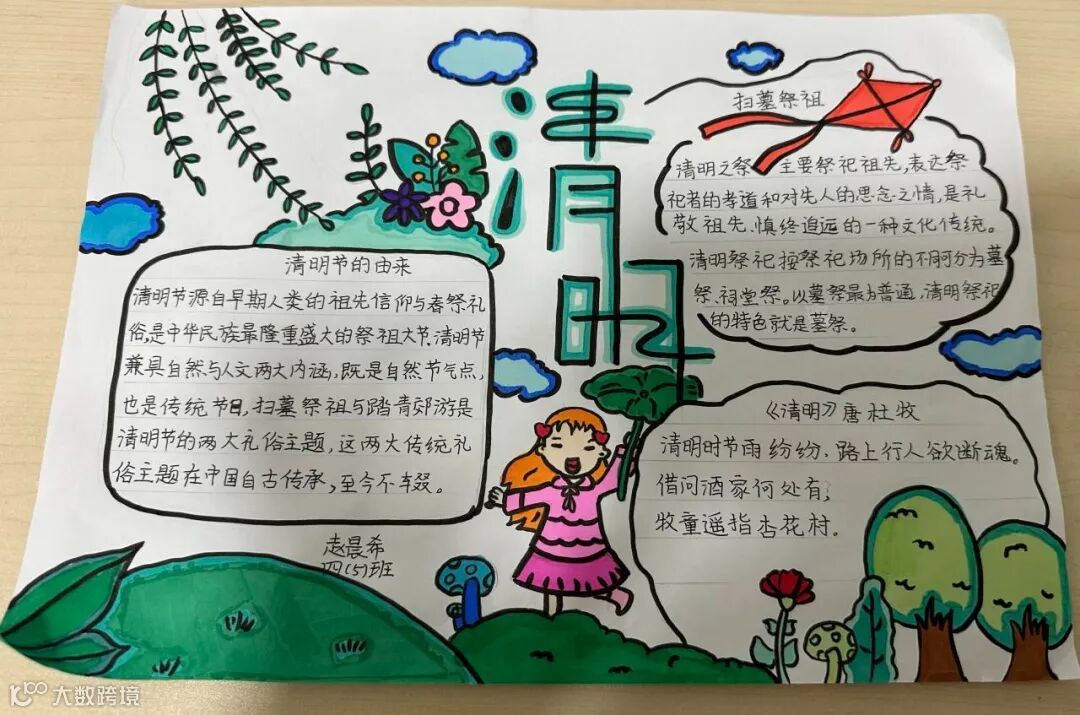 清明
清明节的由来
清明节源自早期人类的祖先信仰与春祭礼
俗,是中华民族最隆重盛大的祭祖大节.清明节
兼具自然与人文两大内涵,既是自然节气点,
也是传统节日,扫墓祭祖与踏青郊游是
清明节的两大礼俗主题,这两大传统礼
俗主题在中国自古传承,至今不辍。
赵晨希
四(5)班
扫墓祭祖
清明之祭 主要祭祀祖先,表达祭
祀者的孝道和对先人的思念之情,是礼
敬祖先、慎终追远的一种文化传统。
清明祭祀按祭祀场所的不同可分为墓
祭、祠堂祭。以墓祭最为普通,清明祭祀
的特色就是墓祭。
《清明》唐 杜牧
清明时节雨纷纷,路上行人欲断魂。
借问酒家何处有,
牧童遥指杏花村.
大数跨境